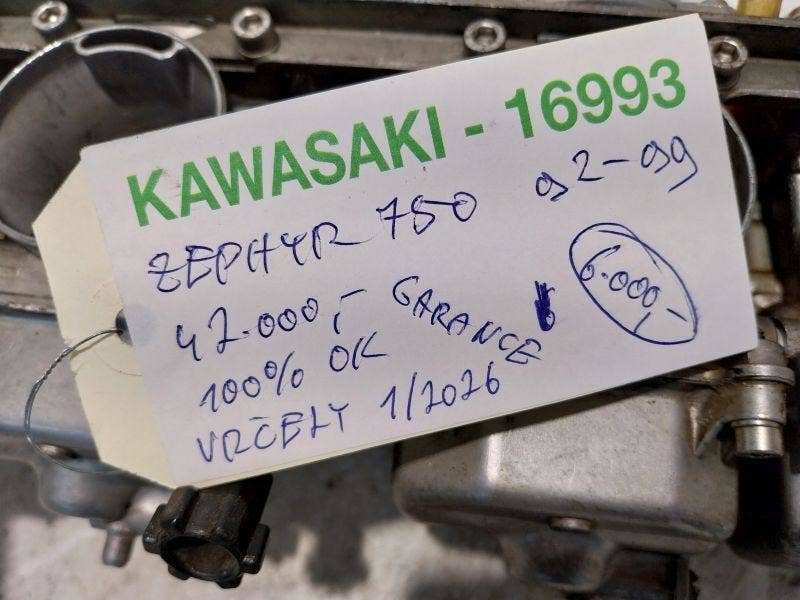 KAWASAKI - 16993
ZEPHYR 750 92-99
47.000,- GARANCE
6.000,-
100% OK
VRČELY 1/2026